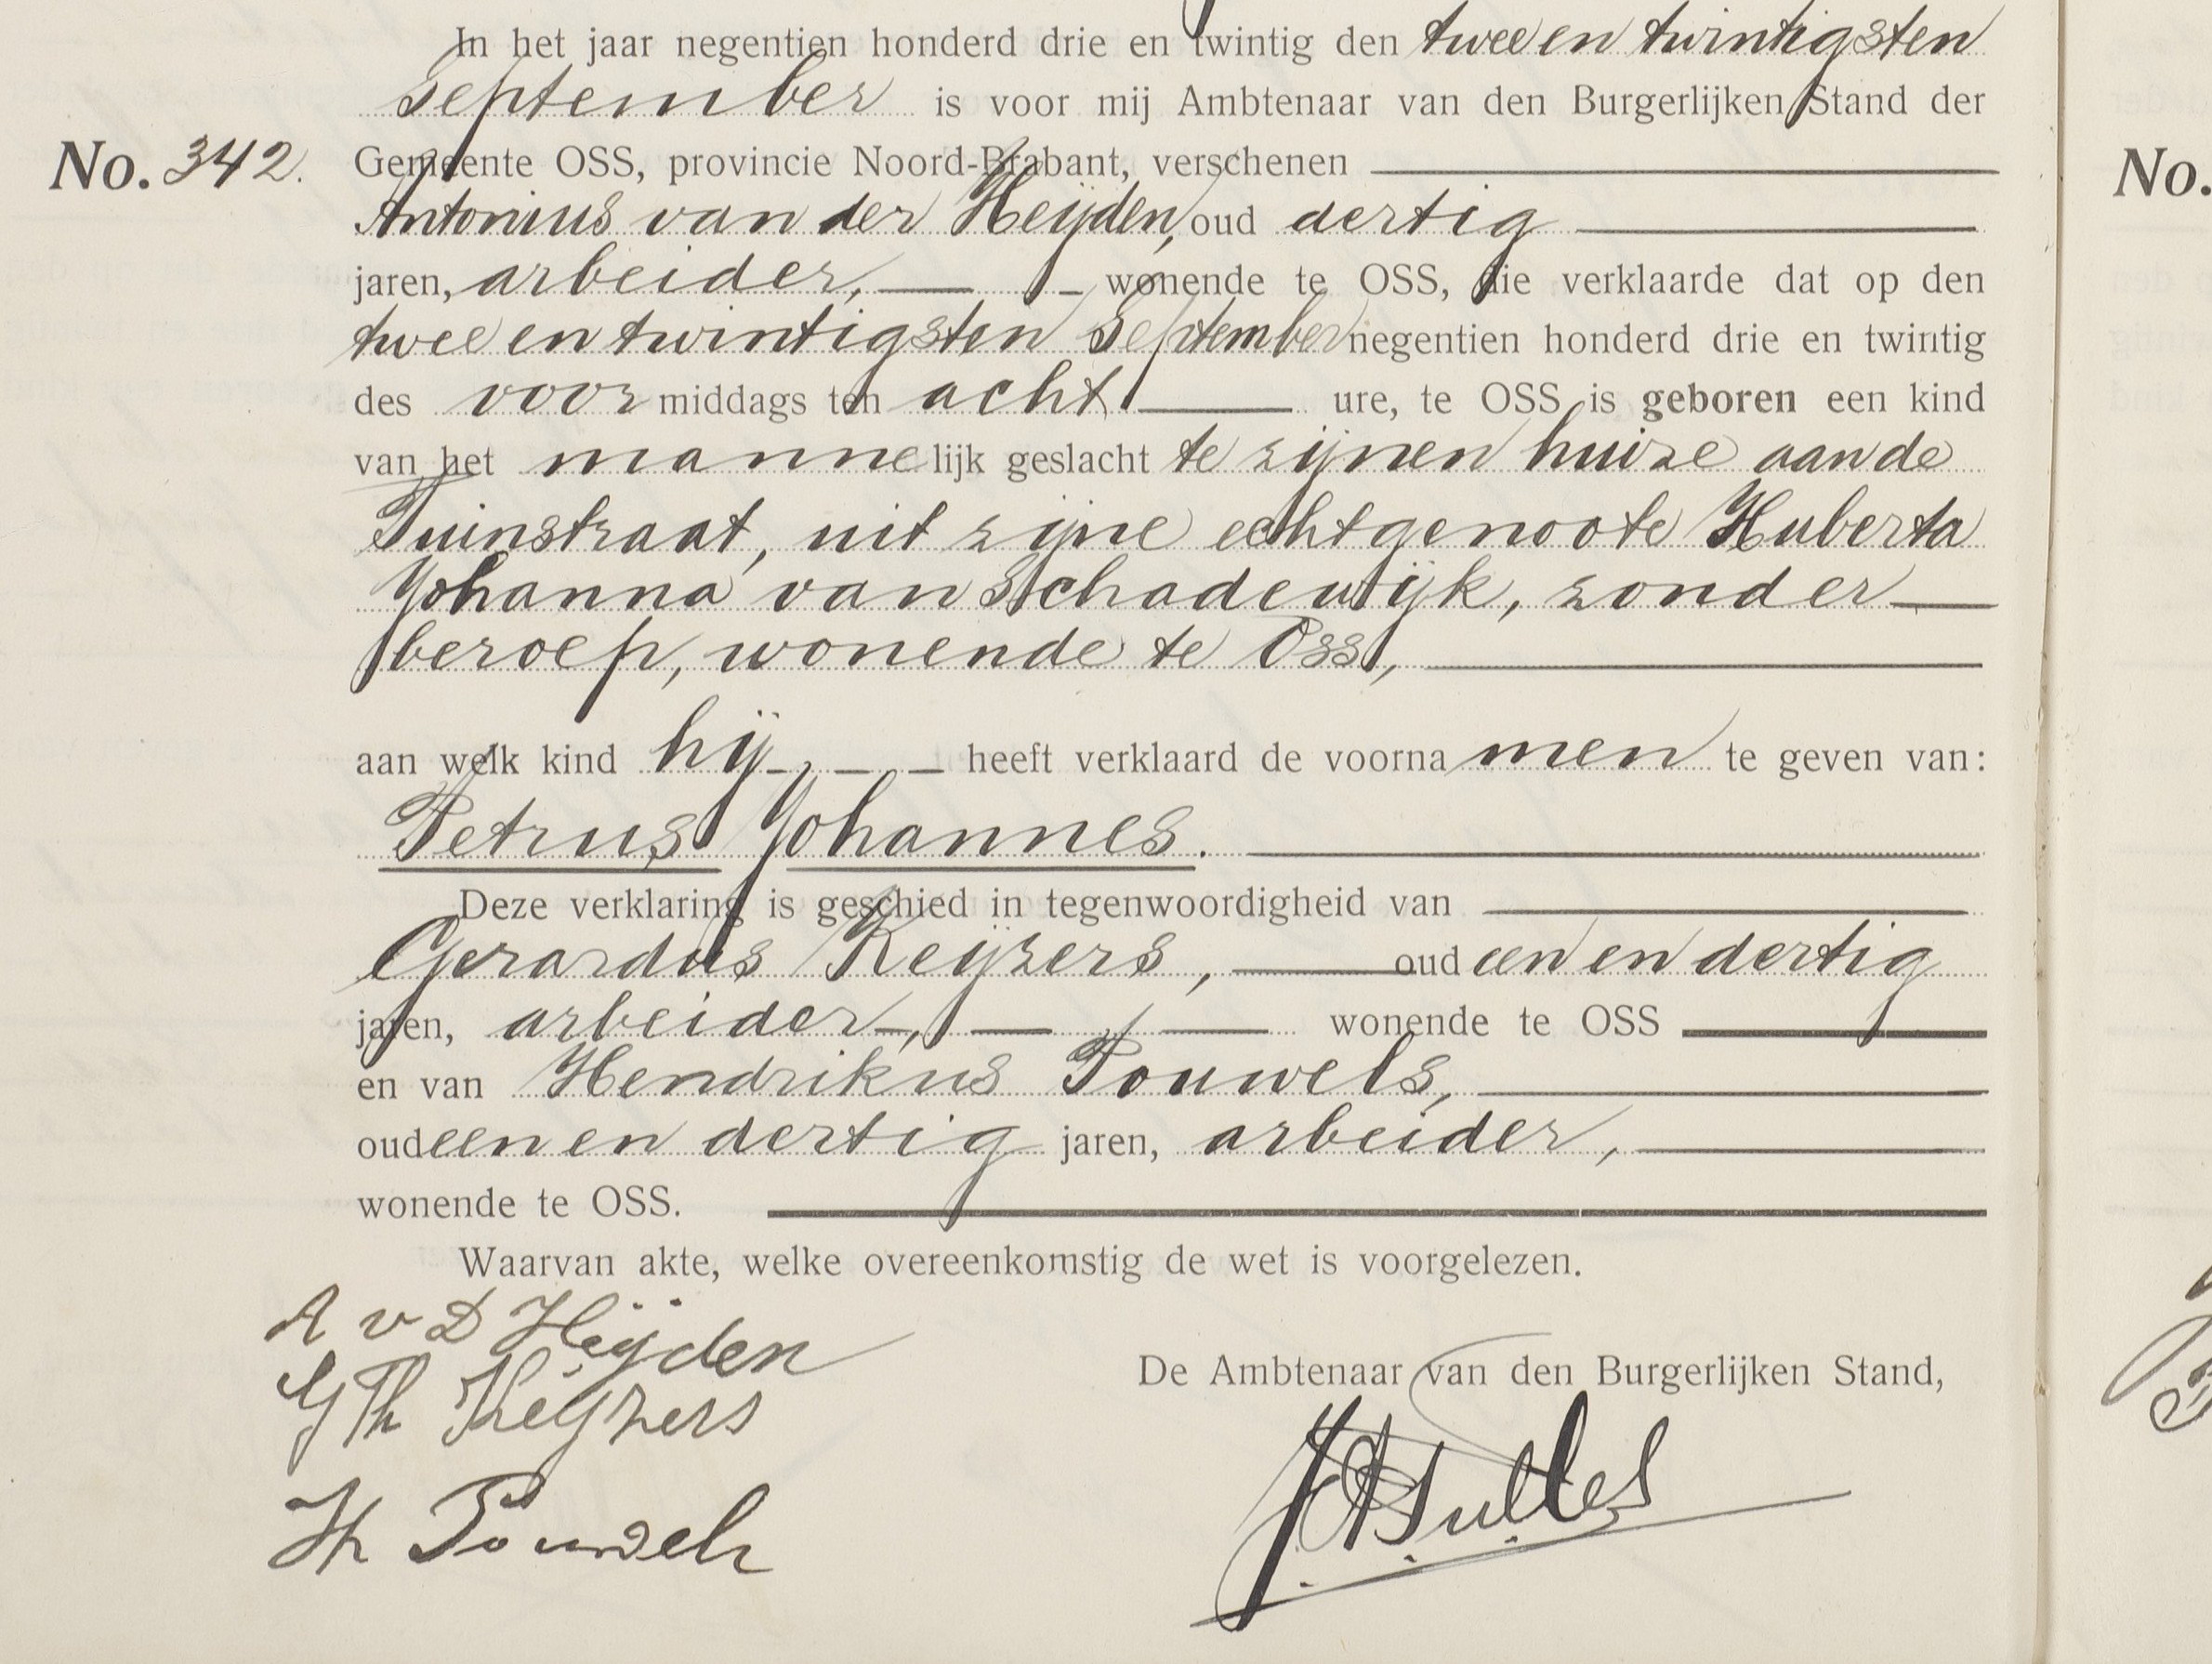 In het jaar negentien honderd drie en twintig den twee en twintigsten
September is voor mij Ambtenaar van den Burgerlijken Stand der
No. 342. Gemeente OSS, provincie Noord-Brabant, verschenen
No.
Antonius van der Heijden, oud dertig
jaren, arbeider, wonende te OSS, die verklaarde dat op den
twee en twintigsten September negentien honderd drie en twintig
des voormiddags ten acht ure, te OSS is geboren een kind
van het mannelijk geslacht te zijnen huize aan de
Tuinstraat, uit zijne echtgenoote Huberta
Johanna van Schadewijk, zonder
beroep, wonende te Oss,
aan welk kind hij heeft verklaard de voornamen te geven van:
Petrus Johannes.
Deze verklaring is geschied in tegenwoordigheid van
Gerardus Keijzers, oud een en dertig
jaren, arbeider, wonende te OSS
en van Hendrikus Pouwels,
oud een en dertig jaren, arbeider,
wonende te OSS.
Waarvan akte, welke overeenkomstig de wet is voorgelezen.
A v D Heijden
G Th Keijzers
De Ambtenaar van den Burgerlijken Stand,
H Pouwels